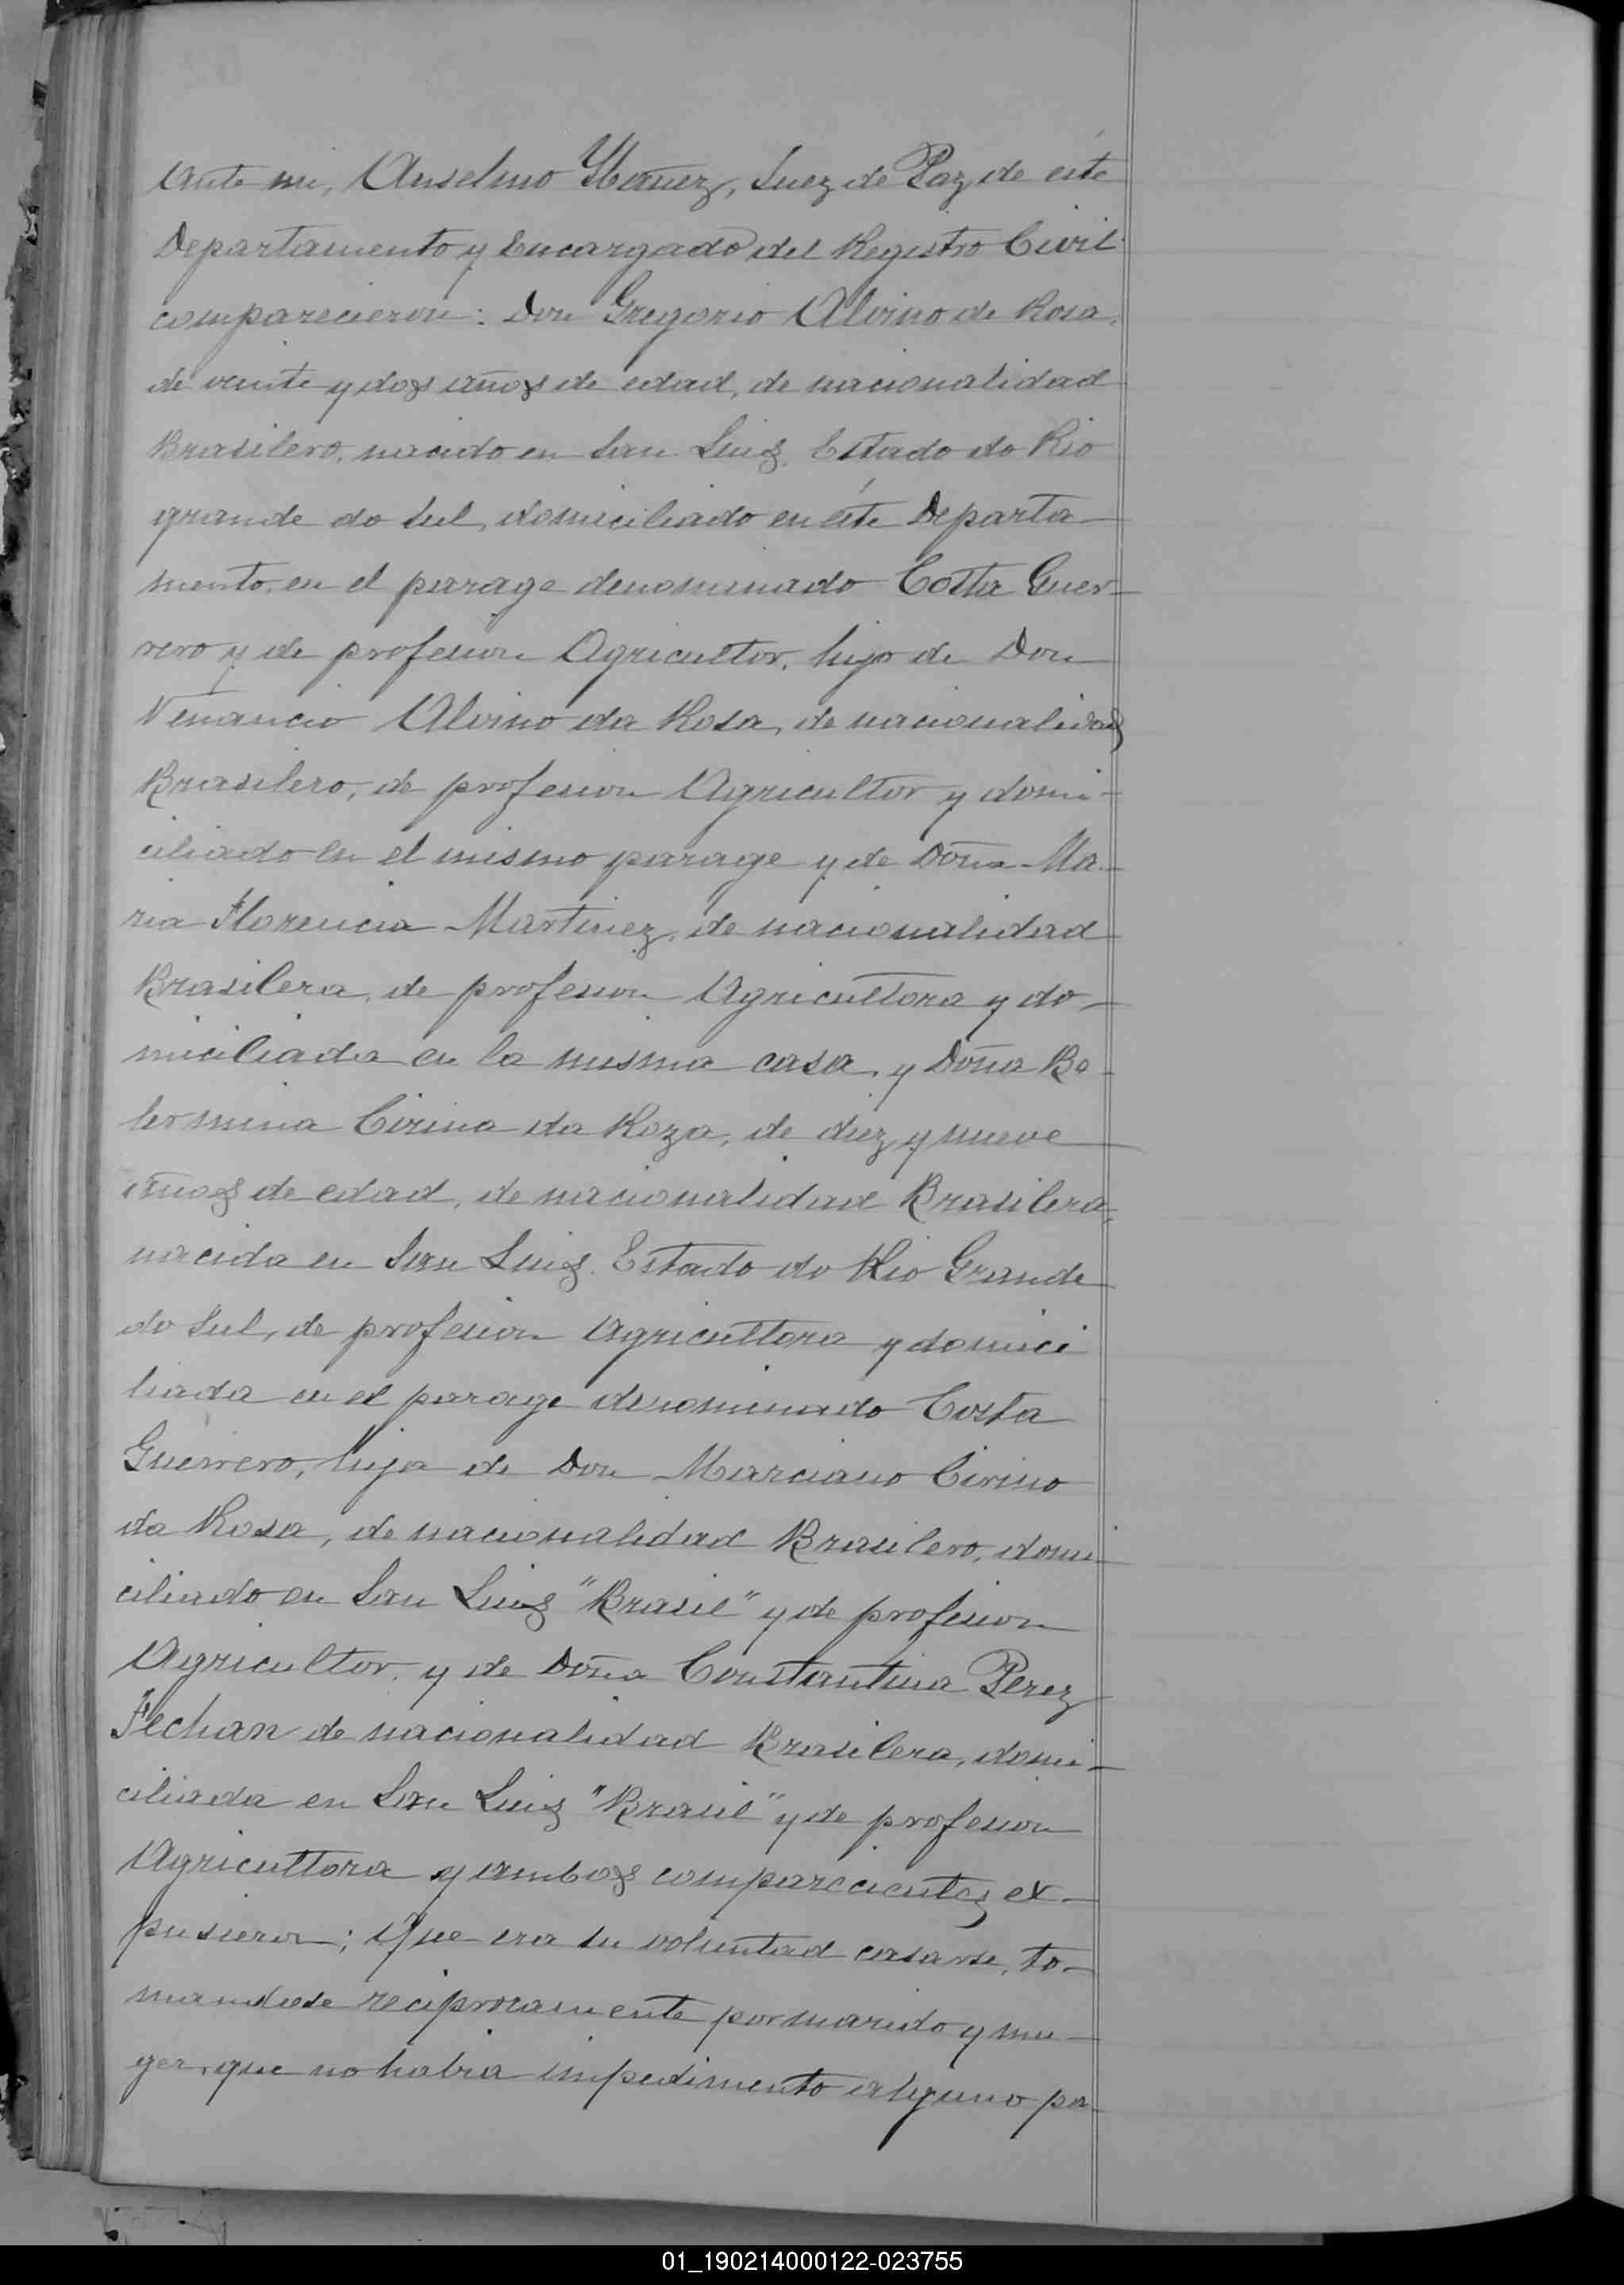 Ante mi, Anselmo Ybañez, Juez de Paz de éste
Departamento y Encargado del Registro Civil
comparecieron: Don Gregorio Alvino de Rosa,
de veinte y dos años de edad, de nacionalidad
Brasilero, nacido en San Luis, Estado do Rio
grande do Sul, domiciliado en éste Departa-
mento, en el parage denominado Costa Guer-
rero y de profesion Agricultor, hijo de Don
Venancio Alvino da Rosa, de nacionalidad
Brasilero, de profesion Agricultor y domi-
ciliado en el mismo parage y de Doña Ma-
ria Florencia Martinez, de nacionalidad
Brasilera, de profesion Agricultora y do-
miciliada en la misma casa, y Doña Be-
lermina Cirina da Roza, de diez y nueve
años de edad, de nacionalidad Brasilera,
nacida en San Luis. Estado do Rio Grande
do Sul, de profesion Agricultora y domici
liada en el parage denominado Costa
Guerrero, hija de Don Marciano Cirino
da Rosa, de nacionalidad Brasilero, domi-
ciliado en San Luis "Brasil" y de profesion
Agricultor, y de Doña Constantina Perez
Fechan de nacionalidad Brasilera, domi-
ciliada en San Luis "Brasil" y de profesion
Agricultora y ambos comparecientes ex-
pusieron; Que era su voluntad casarse, to-
mandose reciprocamente por marido y mu-
ger, que no habia impedimento alguno pa-
01_190214000122-023755